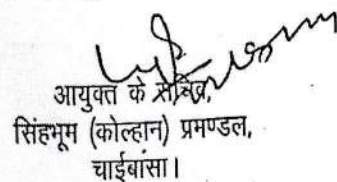 आयुक्त के सचिव,
सिंहभूम (कोल्हान) प्रमण्डल,
चाईबासा।